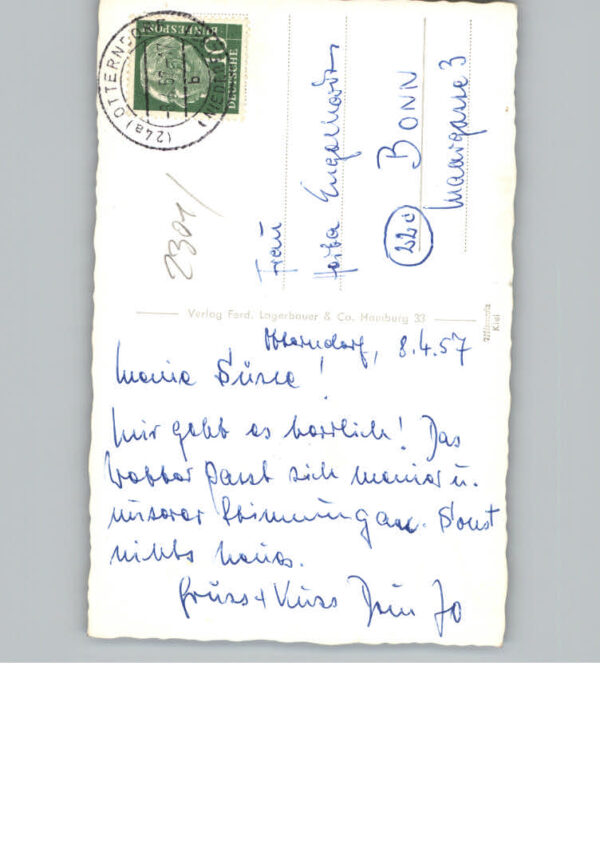 (24a) OTTERNDORF
b
10
DEUTSCHE
BUNDESPOST
2301/
Frau
Engelhardt
22c BONN
Maargasse 3
Verlag Ferd. Lagerbauer & Co. Hamburg 33
Kiel
Otterndorf, 8.4.57
Meine Süsse!
Mir geht es herrlich! Das
Wetter passt sich meiner u.
unserer Stimmung an. Sonst
nichts neues.
Gruss + Kuss Dein Jo